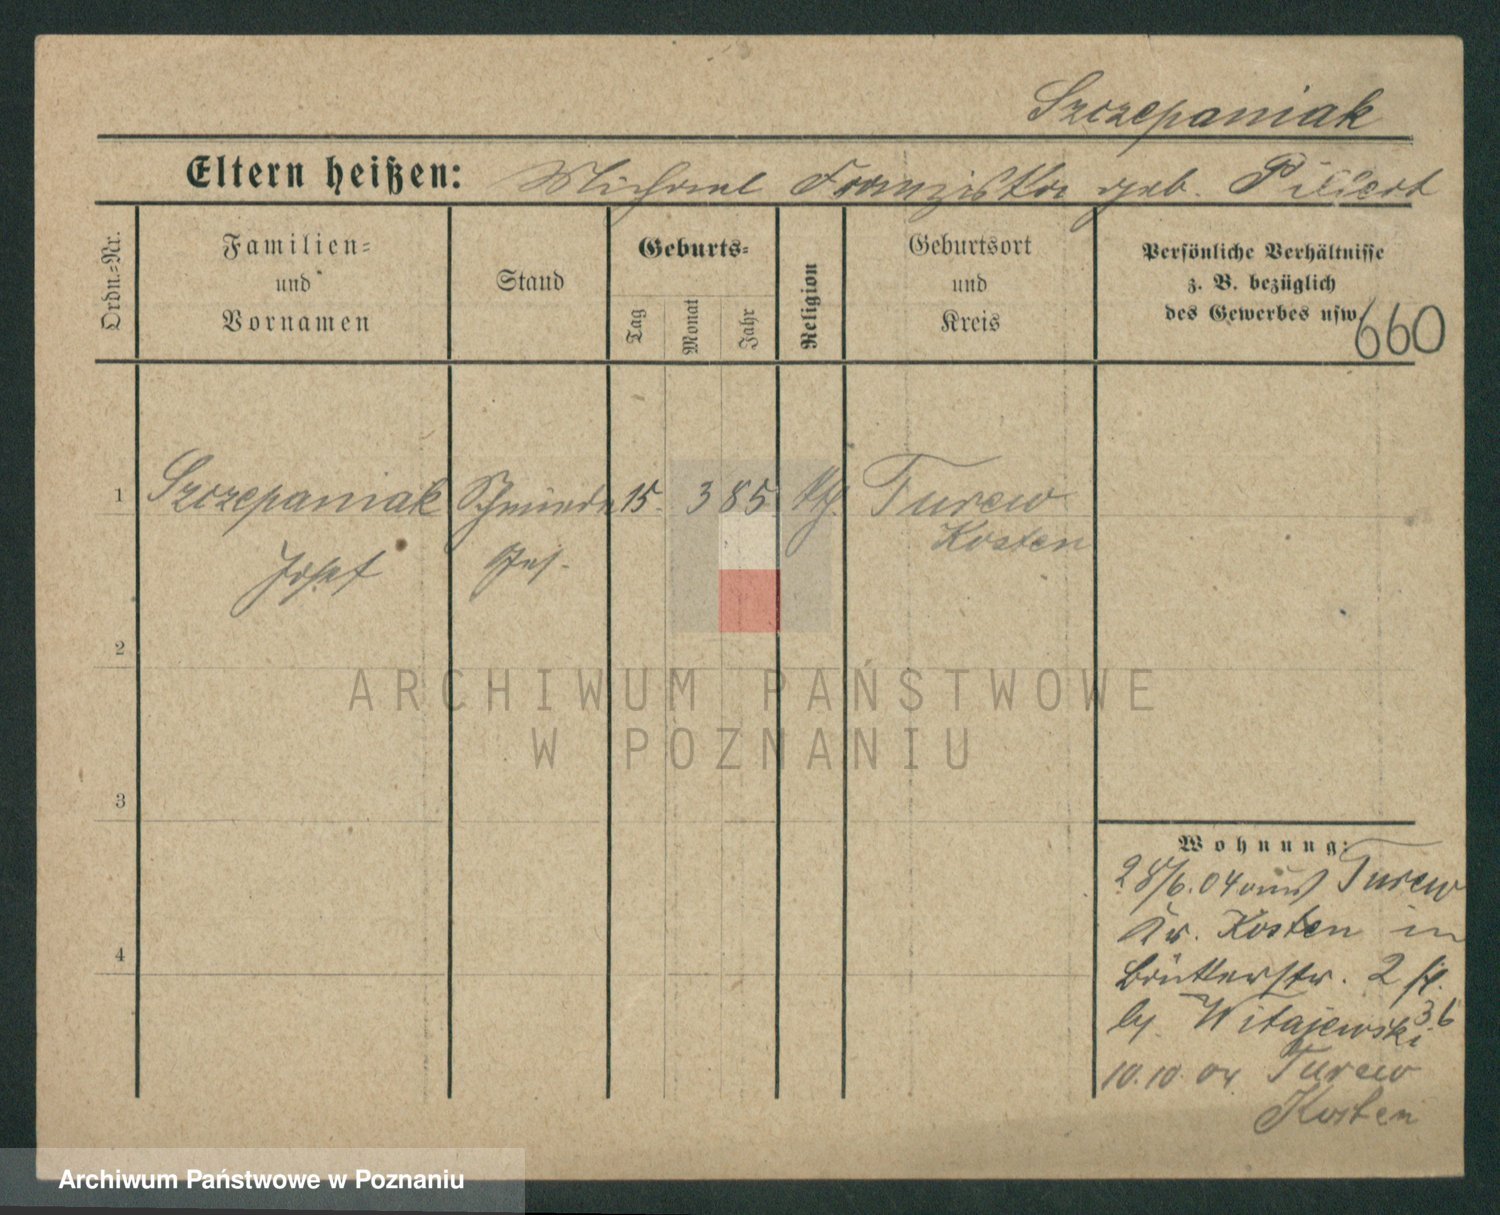 Szczepaniak
Eltern heißen: Michael Franziska geb.
Ordn.=Nr.
Familien=
und
Vornamen
Stand
Geburts=
Tag
Monat
Jahr
Religion
Geburtsort
und
Kreis
Persönliche Verhältnisse
z. B. bezüglich
des Gewerbes usw.
660
1 Szczepaniak Schmiede 15. 3 85 kth. Turew
Kosten
Josef Ges.
2
3
4
ARCHIWUM PAŃSTWOWE
W POZNANIU
Wohnung:
28/6.04 aus Turew
Kr. Kosten in
2
by. Witajewski 36
10.10.04 Turew
Kosten
Archiwum Państwowe w Poznaniu